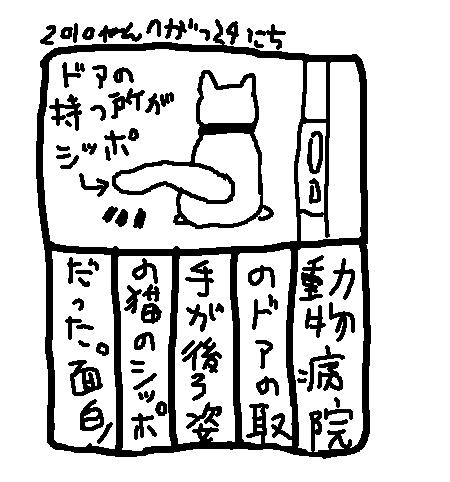 2010ねん7がつ24にち
ドアの
持つ所が
シッポ
動物病院
のドアの取
手が後ろ姿
の猫のシッポ
だった。面白!